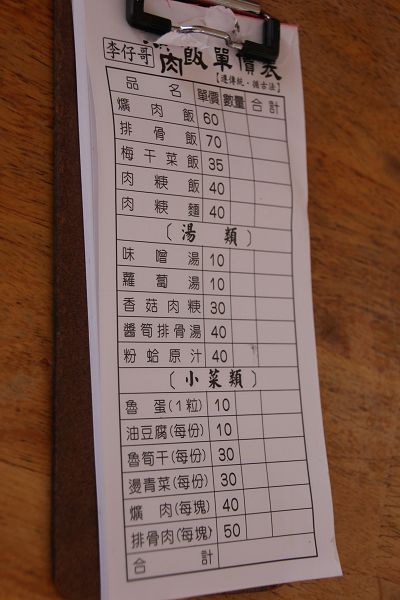 李仔哥 爌肉飯單價表
【遵傳統・循古法】
品名 單價 數量 合計
爌肉飯 60
排骨飯 70
梅干菜飯 35
肉粳飯 40
肉粳麵 40
〔湯類〕
味噌湯 10
蘿蔔湯 10
香菇肉粳 30
醬筍排骨湯 40
粉蛤原汁 40
〔小菜類〕
魯蛋(1粒) 10
油豆腐(每份) 10
魯筍干(每份) 30
燙青菜(每份) 30
爌肉(每塊) 40
排骨肉(每塊) 50
合計